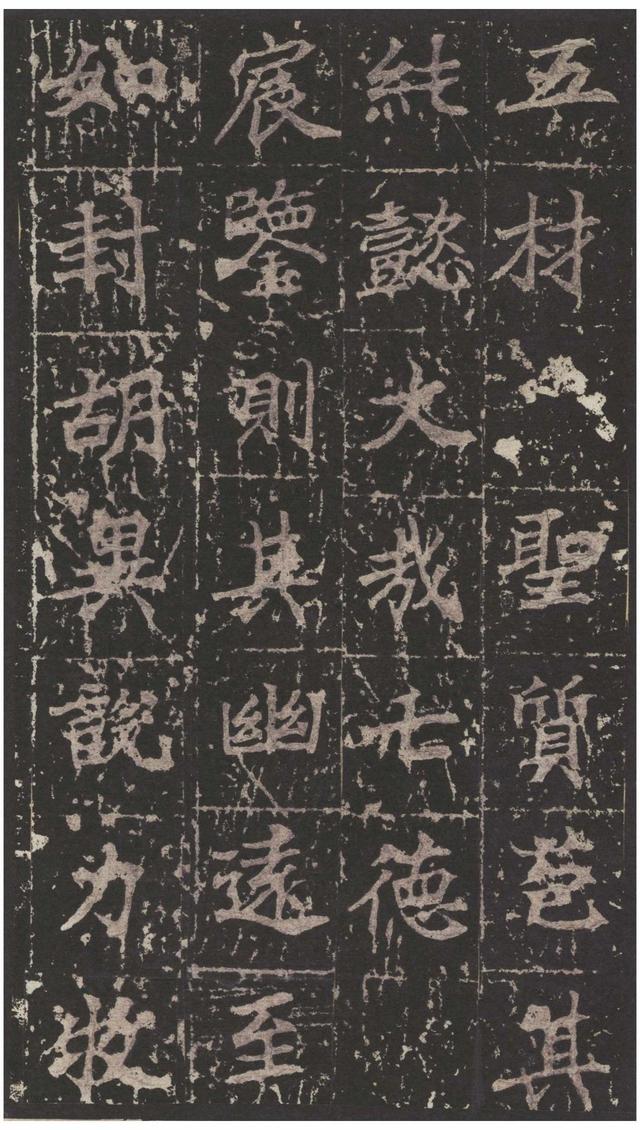 五材聖質苞其
純懿大哉七德
宸鑒則其幽遠至
如封胡異說力牧